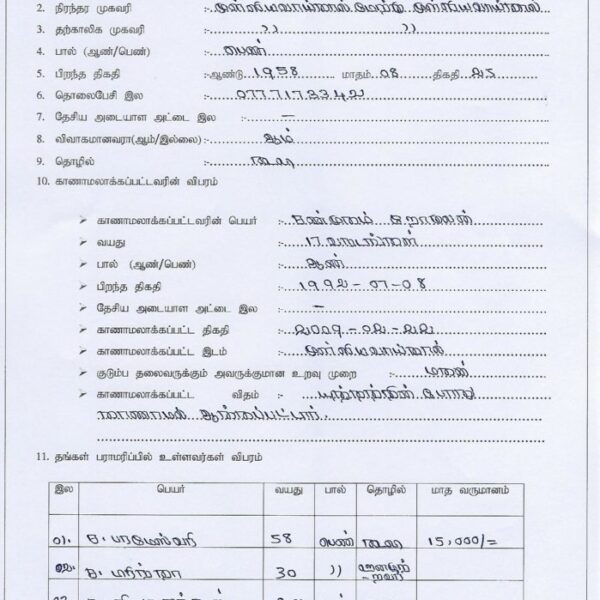 2. நிரந்தர முகவரி :- முள்ளிவாய்க்கால் மேற்கு முள்ளிவாய்க்கால்
3. தற்காலிக முகவரி :- ,, ,,
4. பால் (ஆண்/பெண்) :- பெண்
5. பிறந்த திகதி :-ஆண்டு 1958 மாதம் 08 திகதி 25
6. தொலைபேசி இல :- 07717173342
7. தேசிய அடையாள அட்டை இல :- –
8. விவாகமானவரா(ஆம்/இல்லை) :- ஆம்
9. தொழில் :-
10. காணாமலாக்கப்பட்டவரின் விபரம்
➤ காணாமலாக்கப்பட்டவரின் பெயர் :-
➤ வயது :- 17
➤ பால் (ஆண்/பெண்) :- ஆண்
➤ பிறந்த திகதி :- 1992-07-08
➤ தேசிய அடையாள அட்டை இல :- –
➤ காணாமலாக்கப்பட்ட திகதி :- 2009-02-22
➤ காணாமலாக்கப்பட்ட இடம் :- முள்ளிவாய்க்கால்
➤ குடும்ப தலைவருக்கும் அவருக்குமான உறவு முறை :- மகன்
➤ காணாமலாக்கப்பட்ட விதம் :- யுத்தத்தின் போது
காணாமல் ஆக்கப்பட்டார்.
11. தங்கள் பராமரிப்பில் உள்ளவர்கள் விபரம்
இல பெயர் வயது பால் தொழில் மாத வருமானம்
01. ச. பரமேஸ்வரி 58 பெண் 15,000/=
02. 30 ,,